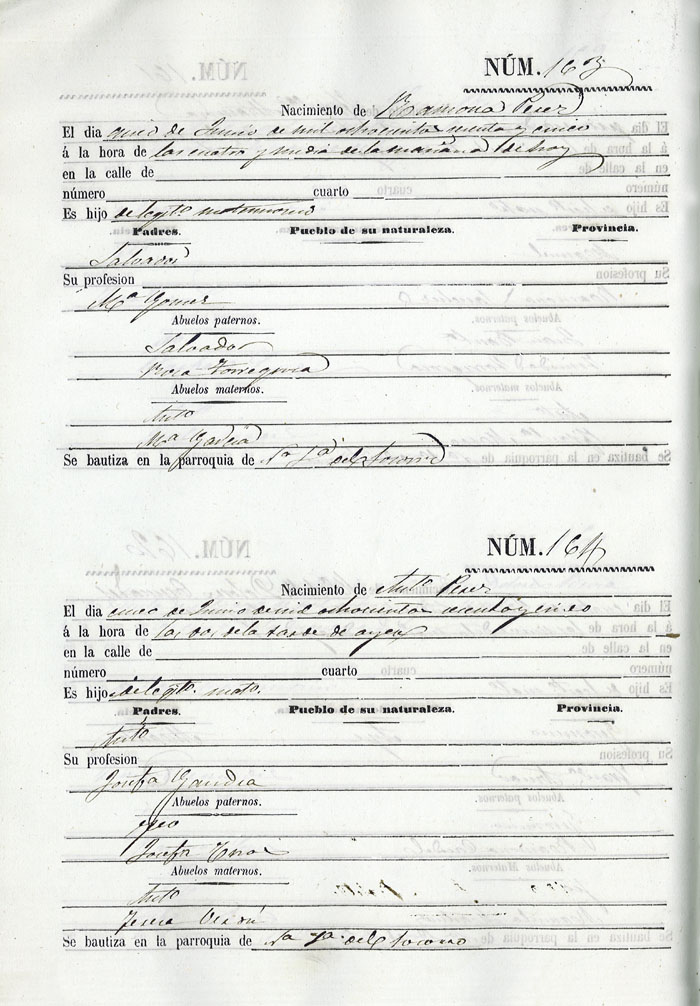 NÚM. 163
Nacimiento de Ramona Perez
El dia once de Junio de mil ochocientos sesenta y cinco
á la hora de las cuatro y media de la mañana de hoy
en la calle de
número cuarto
Es hijo de legto. matrimonio
Padres. Pueblo de su naturaleza. Provincia.
Salvador
Su profesion
Ma Gomez
Abuelos paternos.
Salvador
Rosa Torregrosa
Abuelos maternos.
Anto
Ma Garcia
Se bautiza en la parroquia de Na Sa del Socorro
NÚM. 164
Nacimiento de Anto Perez
El dia once de Junio de mil ochocientos sesenta y cinco
á la hora de las dos de la tarde de ayer
en la calle de
número cuarto
Es hijo de legto. mato.
Padres. Pueblo de su naturaleza. Provincia.
Anto
Su profesion
Josefa Gandia
Abuelos paternos.
Josefa
Abuelos maternos.
Anto
Teresa Verdú
Se bautiza en la parroquia de Na Sa del Socorro